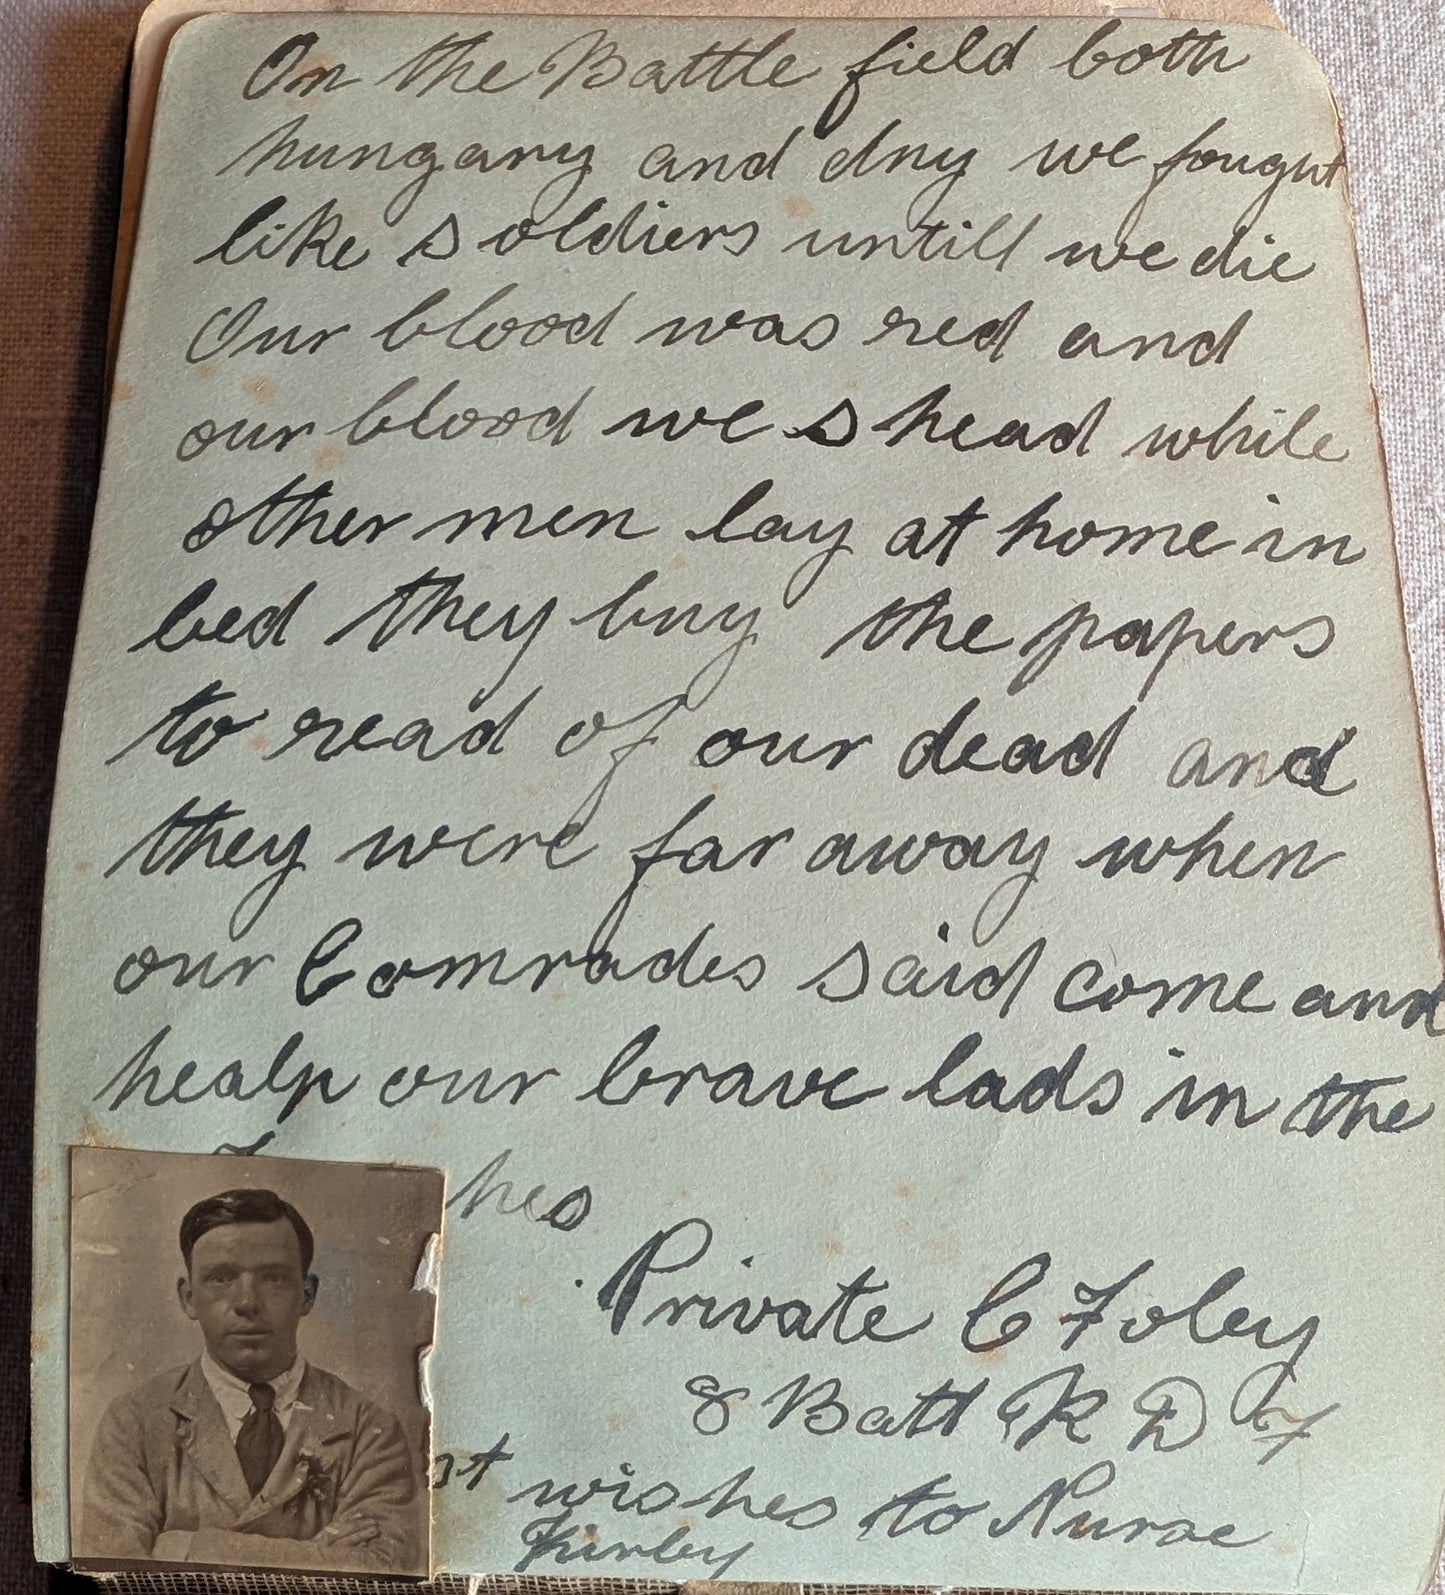 On the Battle field both
hungary and dry we fought
like soldiers untill we die
Our blood was red and
our blood we shead while
other men lay at home in
bed they buy the papers
to read of our dead and
they were far away when
our Comrades said come and
healp our brave lads in the
hes
Private C Foley
8 Batt R D F
st wishes to Nurse